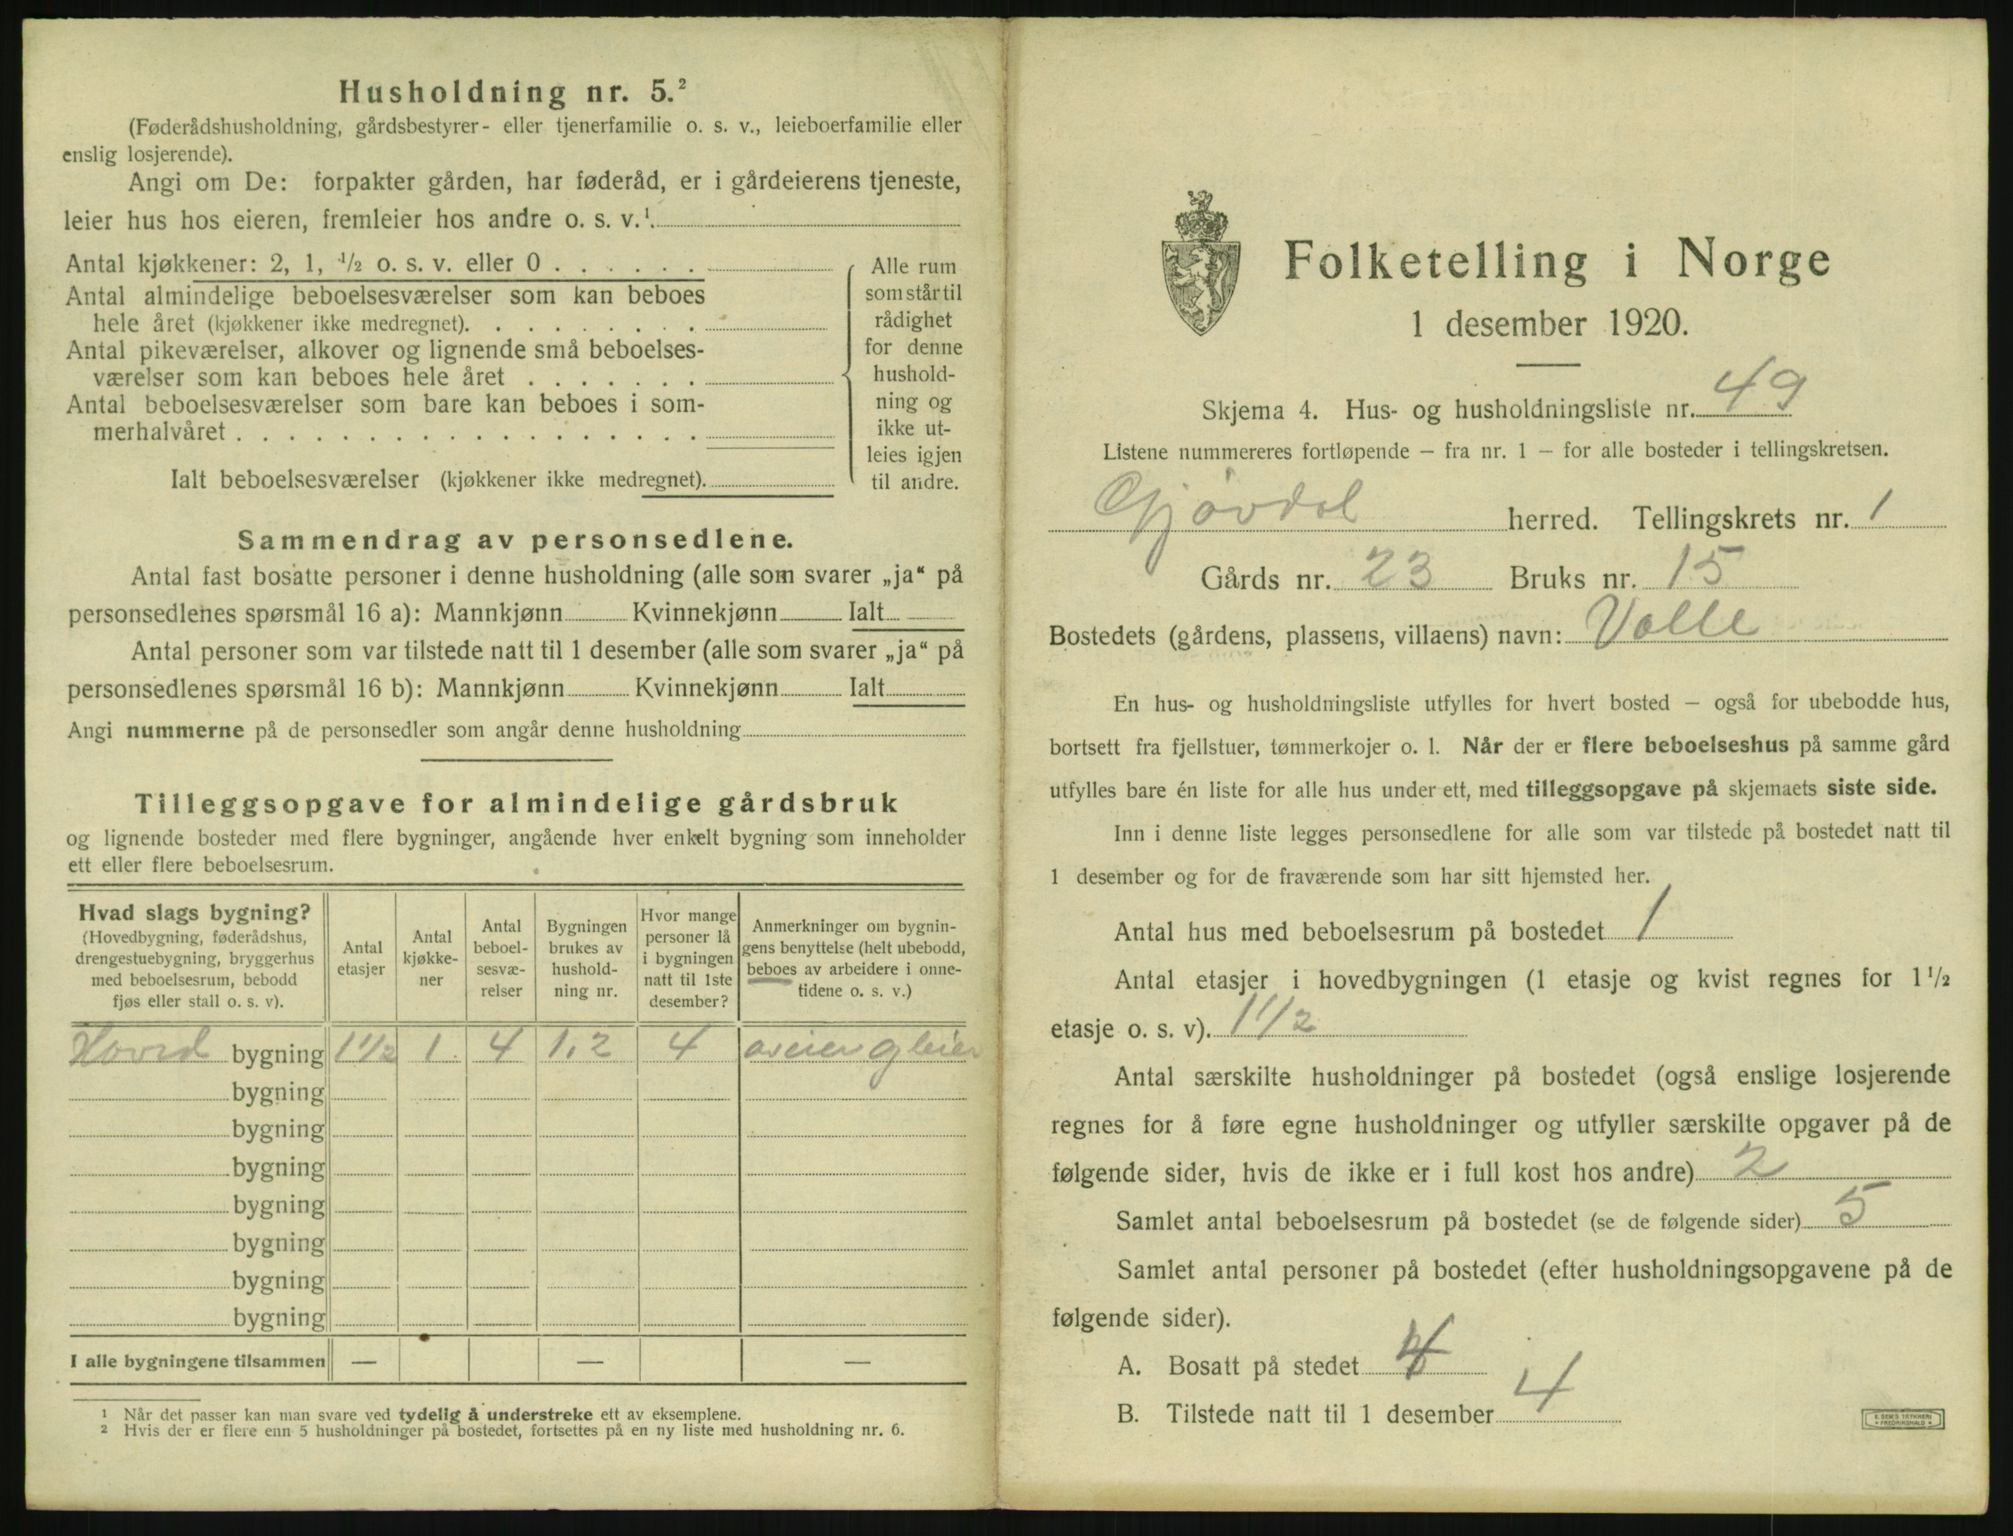 Husholdning nr. 5.²
(Føderådshusholdning, gårdsbestyrer- eller tjenerfamilie o. s. v., leieboerfamilie eller
enslig losjerende).
Angi om De: forpakter gården, har føderåd, er i gårdeierens tjeneste,
leier hus hos eieren, fremleier hos andre o. s. v.¹
Antal kjøkkener: 2, 1, ½ o. s. v. eller 0
Antal almindelige beboelsesværelser som kan beboes
hele året (kjøkkener ikke medregnet).
Antal pikeværelser, alkover og lignende små beboelses-
værelser som kan beboes hele året
Antal beboelsesværelser som bare kan beboes i som-
merhalvåret
Ialt beboelsesværelser (kjøkkener ikke medregnet).
Alle rum
som står til
rådighet
for denne
hushold-
ning og
ikke ut-
leies igjen
til andre.
Sammendrag av personsedlene.
Antal fast bosatte personer i denne husholdning (alle som svarer „ja“ på
personsedlenes spørsmål 16 a): Mannkjønn Kvinnekjønn Ialt
Antal personer som var tilstede natt til 1 desember (alle som svarer „ja“ på
personsedlenes spørsmål 16 b): Mannkjønn Kvinnekjønn Ialt
Angi nummerne på de personsedler som angår denne husholdning
Tilleggsopgave for almindelige gårdsbruk
og lignende bosteder med flere bygninger, angående hver enkelt bygning som inneholder
ett eller flere beboelsesrum.
Hvad slags bygning?
(Hovedbygning, føderådshus,
drengestuebygning, bryggerhus
med beboelsesrum, bebodd
fjøs eller stall o. s. v).
Antal
etasjer
Antal
kjøkke-
ner
Antal
beboel-
sesvæ-
relser
Bygningen
brukes av
hushold-
ning nr.
Hvor mange
personer lå
i bygningen
natt til 1ste
desember?
Anmerkninger om bygnin-
gens benyttelse (helt ubebodd,
beboes av arbeidere i onne-
tidene o. s. v.)
Hoved bygning 1½ 1. 4 1.2 4 aveier og leier
bygning
bygning
bygning
bygning
bygning
bygning
bygning
I alle bygningene tilsammen — — —
¹ Når det passer kan man svare ved tydelig å understreke ett av eksemplene.
² Hvis der er flere enn 5 husholdninger på bostedet, fortsettes på en ny liste med husholdning nr. 6.
Folketelling i Norge
1 desember 1920.
Skjema 4. Hus- og husholdningsliste nr. 49
Listene nummereres fortløpende – fra nr. 1 – for alle bosteder i tellingskretsen.
Gjövdal herred. Tellingskrets nr. 1
Gårds nr. 23 Bruks nr. 15
Bostedets (gårdens, plassens, villaens) navn: Valle
En hus- og husholdningsliste utfylles for hvert bosted – også for ubebodde hus,
bortsett fra fjellstuer, tømmerkojer o. l. Når der er flere beboelseshus på samme gård
utfylles bare én liste for alle hus under ett, med tilleggsopgave på skjemaets siste side.
Inn i denne liste legges personsedlene for alle som var tilstede på bostedet natt til
1 desember og for de fraværende som har sitt hjemsted her.
Antal hus med beboelsesrum på bostedet 1
Antal etasjer i hovedbygningen (1 etasje og kvist regnes for 1½
etasje o. s. v). 1½
Antal særskilte husholdninger på bostedet (også enslige losjerende
regnes for å føre egne husholdninger og utfyller særskilte opgaver på de
følgende sider, hvis de ikke er i full kost hos andre) 2
Samlet antal beboelsesrum på bostedet (se de følgende sider) 5
Samlet antal personer på bostedet (efter husholdningsopgavene på de
følgende sider).
A. Bosatt på stedet 4
B. Tilstede natt til 1 desember 4